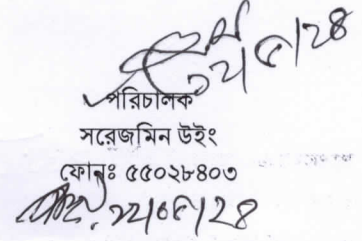 ২২/৫/২৪
পরিচালক
সরেজমিন উইং
ফোনঃ ৫৫০২৮৪০৩
২২/০৫/২৪